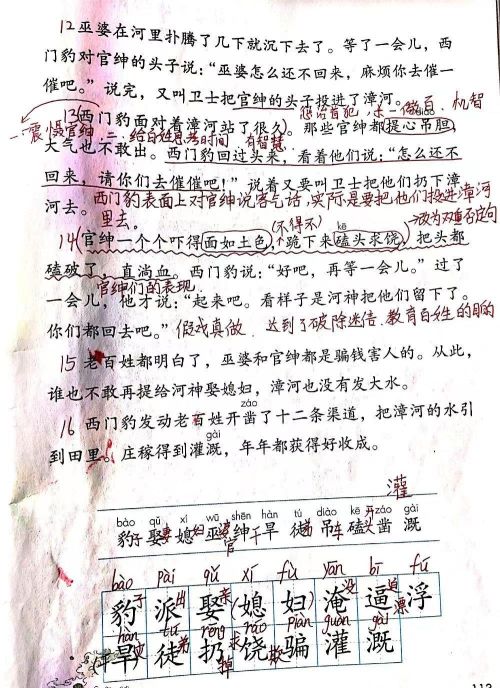 12 巫婆在河里扑腾了几下就沉下去了。等了一会儿，西
门豹对官绅的头子说：“巫婆怎么还不回来，麻烦你去催一
催吧。”说完，又叫卫士把官绅的头子投进了漳河。
13 西门豹面对着漳河站了很久。那些官绅都提心吊胆，
diào
机智
一震慑官绅 二 给百姓思考时间 有智慧
大气也不敢出。西门豹回过头来，看着他们说：“怎么还不
回来，请你们去催催吧！”说着又要叫卫士把他们扔下漳
河去。西门豹表面上对官绅说客气话，实际是要把他们投进漳河
里去。
(不得不) kē 改为双重否定句
14 官绅一个个吓得面如土色，跪下来磕头求饶，把头都
磕破了，直淌血。西门豹说：“好吧，再等一会儿。”过了
官绅们的表现
一会儿，他才说：“起来吧。看样子是河神把他们留下了。
你们都回去吧。”假戏真做 达到了破除迷信 教育百姓的目的
15 老百姓都明白了，巫婆和官绅都是骗钱害人的。从此，
谁也不敢再提给河神娶媳妇，漳河也没有发大水。
záo
16 西门豹发动老百姓开凿了十二条渠道，把漳河的水引
gài
到田里。庄稼得到灌溉，年年都获得好收成。
灌
bào qǔ xí wū shēn hàn tú diào kē záo gài
豹子 娶妻 媳妇 巫婆 绅官 旱干 徒 吊车 磕头 凿开 溉
bào pài qǔ xí fù yān bī fú
豹子 派出 娶亲 媳 妇 淹没 逼迫 浮漂
hàn tú rēng ráo piàn guàn gài
旱 徒弟 扔掉 饶求 骗欺 灌 溉
113